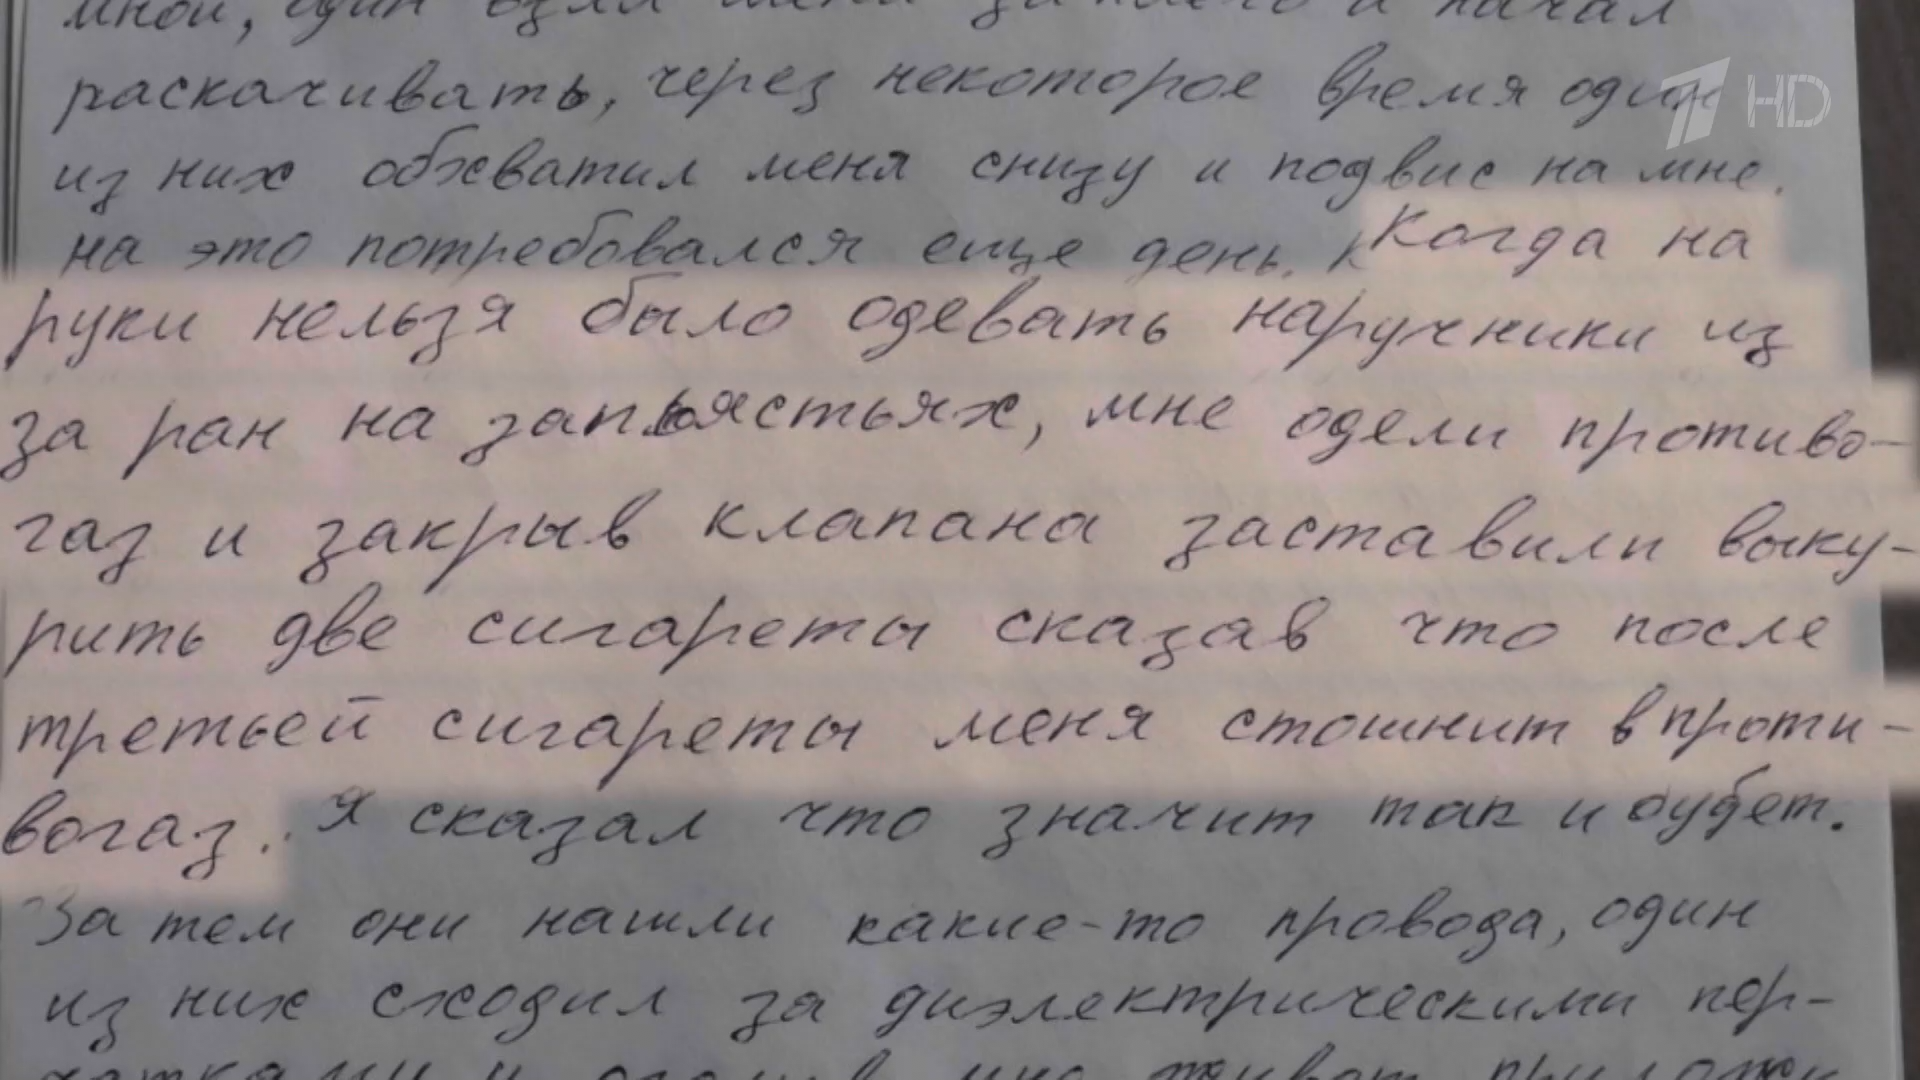 мной, один взял меня за плечо и начал
раскачивать, через некоторое время один
HD
из них обхватил меня снизу и подвис на мне.
на это потребовался еще день. Когда на
руки нельзя было одевать наручники из
за ран на запьястьях, мне одели противо-
газ и закрыв клапана заставили выку-
рить две сигареты сказав что после
третьей сигареты меня стошнит в проти-
вогаз. Я сказал что значит так и будет.
Затем они нашли какие-то провода, один
из них сходил за диэлектрическими пер-
чатками и